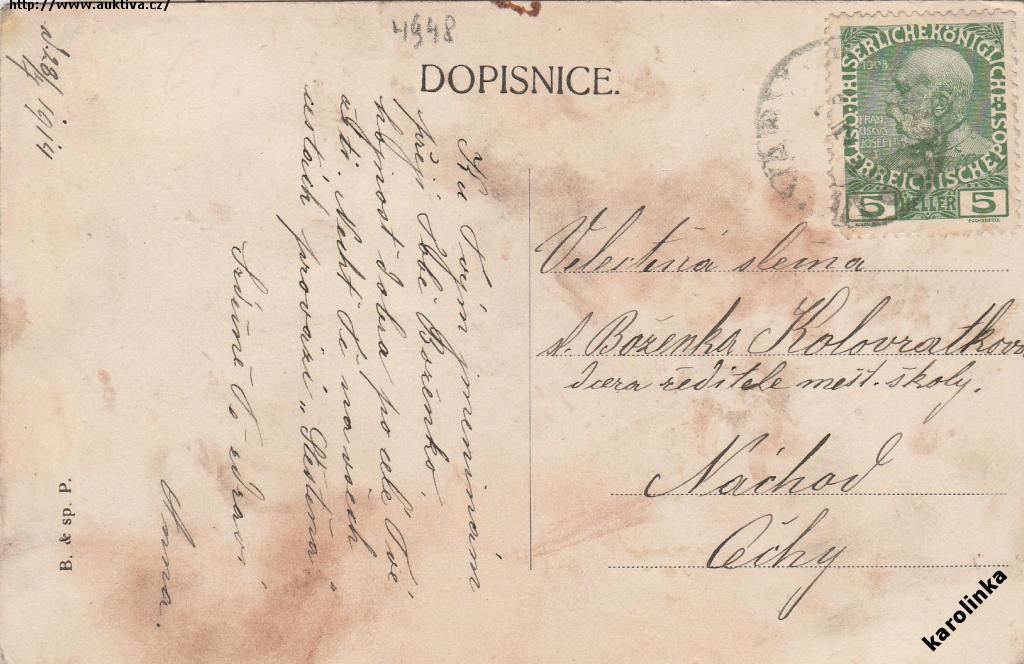 http://www.auktiva.cz/
4948
DOPISNICE.
28/ IV 1914
Ku Tvým jmeninám
přeji Tobě Boženko
hojnost dobra po celé Tvé
žití. Nechť Tě na všech
cestách provází „Štěstěna“
Srdečně Tě zdraví
Anna.
B. & sp. P.
KAISERLICHE KÖNIGLICHE
ÖSTERREICHISCHE POST
1908
FRAN
CISCUS
JOSEPH I
5 HELLER 5
Velectěná slečna
sl. Boženka Kolovratkova
dcera ředitele měst. školy.
Náchod
Čechy
karolinka